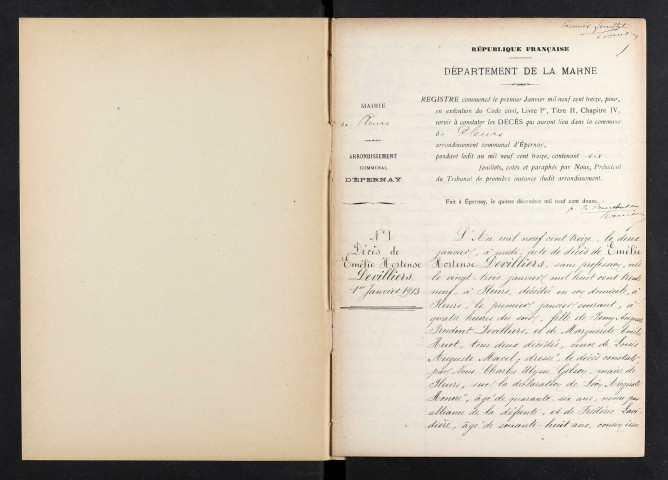 RÉPUBLIQUE FRANÇAISE
DÉPARTEMENT DE LA MARNE
MAIRIE
de Pleurs
ARRONDISSEMENT
COMMUNAL
D'ÉPERNAY
REGISTRE commencé le premier Janvier mil neuf cent treize, pour,
en exécution du Code civil, Livre Ier, Titre II, Chapitre IV,
servir à constater les DÉCÈS qui auront lieu dans la commune
de Pleurs
arrondissement communal d'Épernay,
pendant ledit an mil neuf cent treize, contenant six
feuillets, cotés et paraphés par Nous, Président
du Tribunal de première instance dudit arrondissement.
Fait à Épernay, le quinze décembre mil neuf cent douze.
N° 1
Décès de
Emélie Hortense
Devilliers
1er Janvier 1913
L'An mil neuf cent treize, le deux
janvier, à midi, acte de décès de Emélie
Hortense Devilliers, sans profession, née
le vingt trois janvier mil huit cent trente
neuf, à Pleurs, décédée en son domicile, à
Pleurs, le premier janvier courant, à
quatre heures du soir, fille de Auguste
Prudent Devilliers, et de Marguerite Emélie
Huot, tous deux décédés, veuve de Louis
Auguste Mavel; dressé, le décès constaté,
par Nous Charles Ulysse maire de
Pleurs, sur la déclaration de Léon Auguste
Honoré, âgé de quarante six ans, neveu par
alliance de la défunte, et de Frédéric
âgé de soixante huit ans, cousin